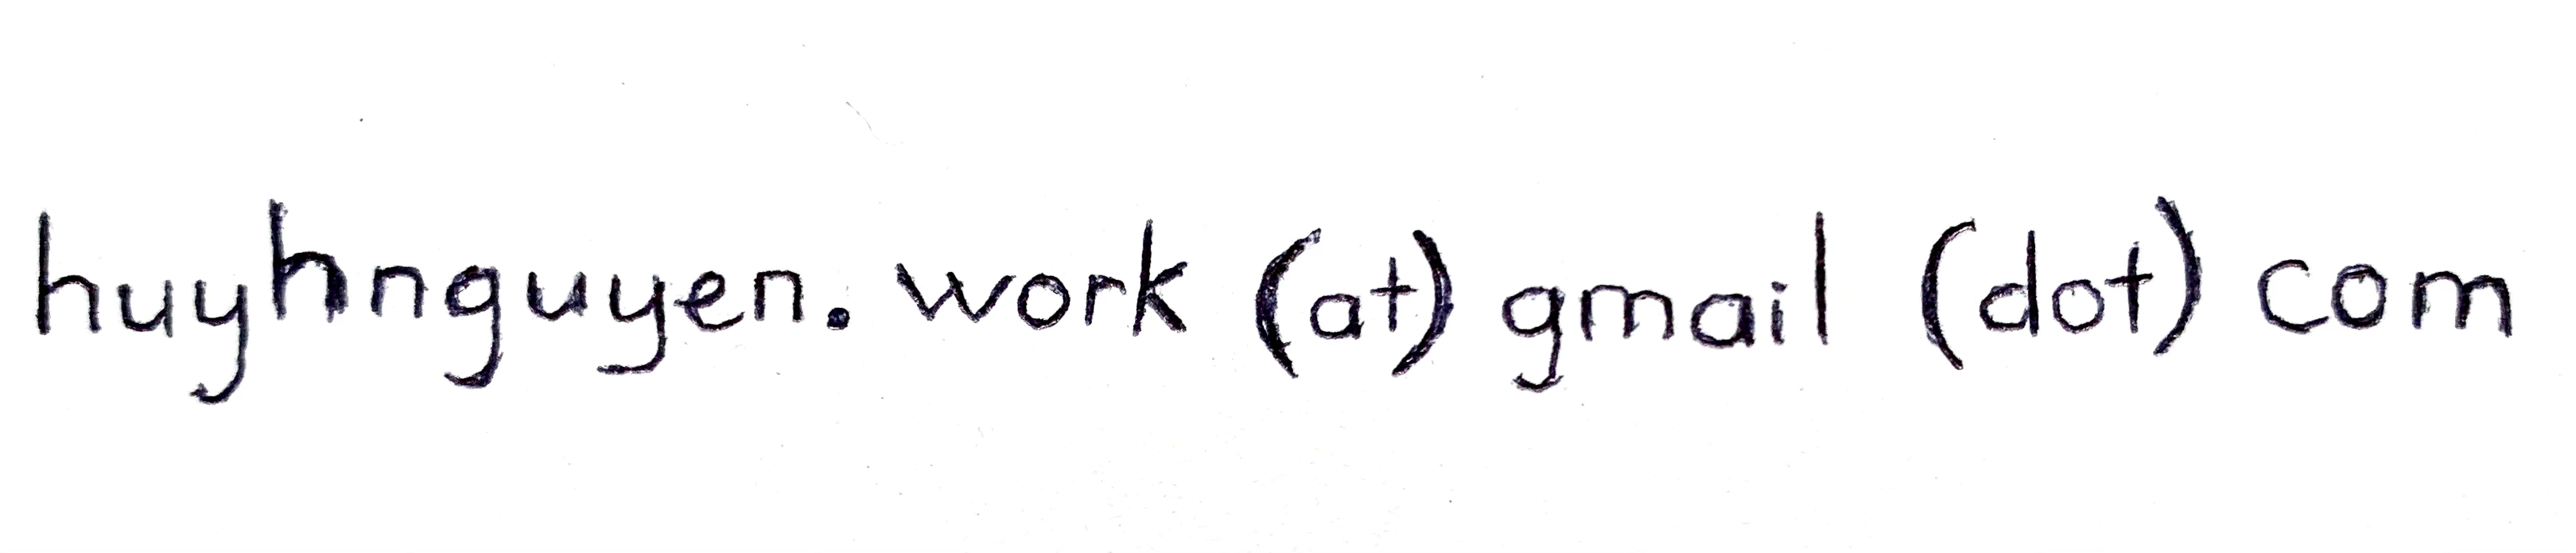 huyhnguyen. work (at) gmail (dot) com